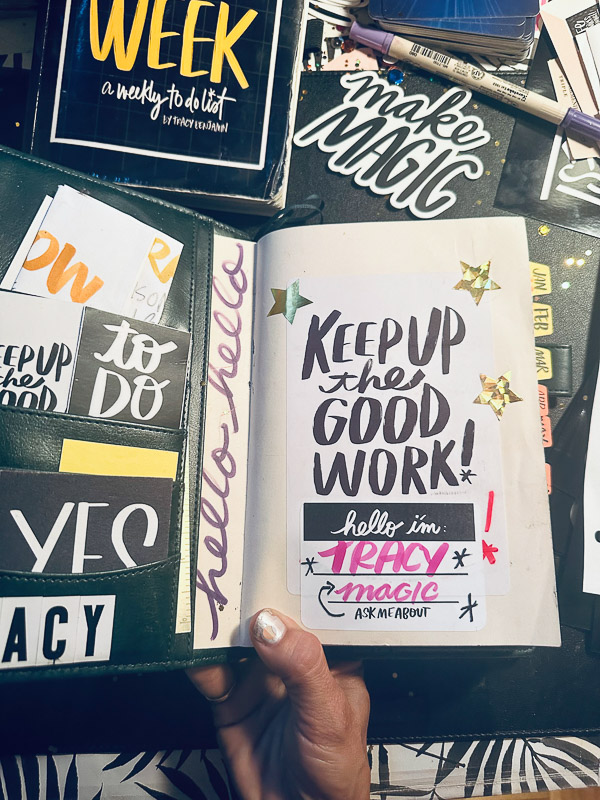 WEEK
a weekly to do list
BY TRACY BENJAMIN
make
MAGIC
OW
EEP UP
the
GOOD
to
DO
YES
ACY
hello hello
KEEP UP
the
GOOD
WORK!
hello i'm:
TRACY
magic
ASK ME ABOUT
JAN
FEB
MAR
APR
MAY